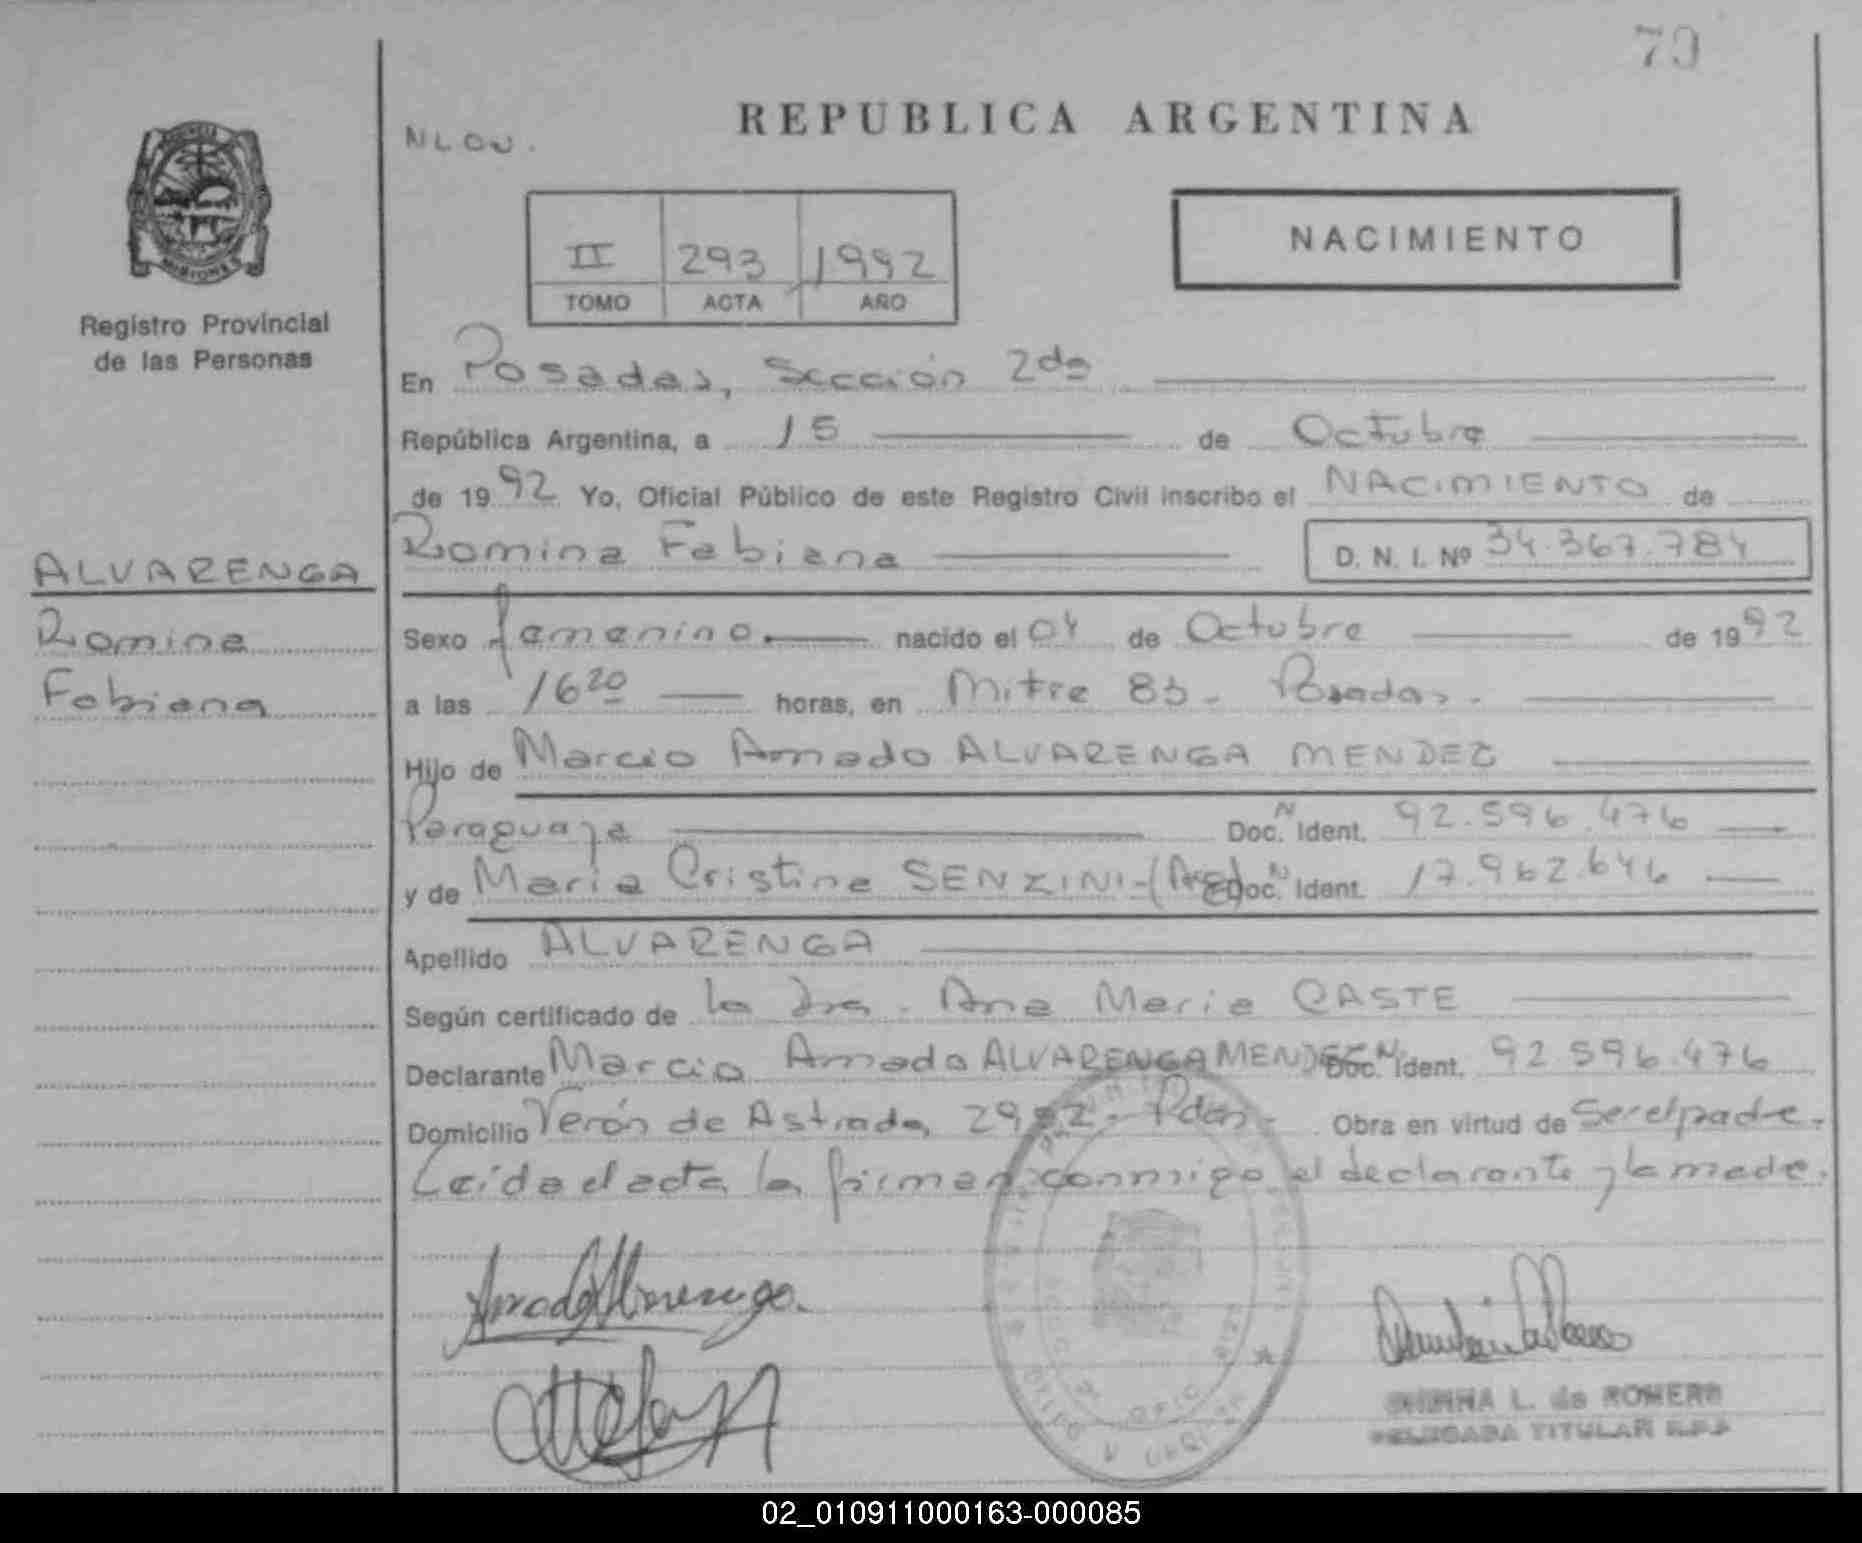 70
NLOU.
REPUBLICA ARGENTINA
NACIMIENTO
II 293 1992
TOMO ACTA AÑO
MISIONES
Registro Provincial
de las Personas
En Posadas, Sección 2da
República Argentina, a 15 de Octubre
de 1992 Yo, Oficial Público de este Registro Civil inscribo el NACIMIENTO de
Romina Fabiana D. N. I. Nº 34.367.784
ALVARENGA
Romina
Fabiana
Sexo femenino. nacido el 04 de Octubre de 1992
a las 16 20 horas, en Mitre 83 - Posadas.
Hijo de Marcio Amado ALVARENGA MENDEZ
Paraguaya Doc. N Ident. 92.596.476
y de Maria Cristina SENZINI-(Arg) Doc. N Ident. 17.962.646
Apellido ALVARENGA
Según certificado de la Dra. Ana Maria CASTE
Declarante Marcio Amado ALVARENGA MENDEZ Doc. N Ident. 92 596.476
Domicilio Verón de Astrada 2992 - Pdas - Obra en virtud de Ser el padre.
Leída el acta la firman conmigo el declarante y la madre.
Amado Alvarenga.
L. de ROMERO
DELEGADA TITULAR R.P.P
02_010911000163-000085